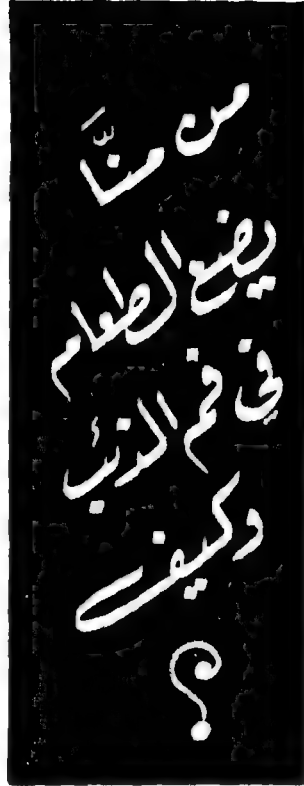 من منَّا
يضع الطعام
في فم الذئب
وكيف
؟